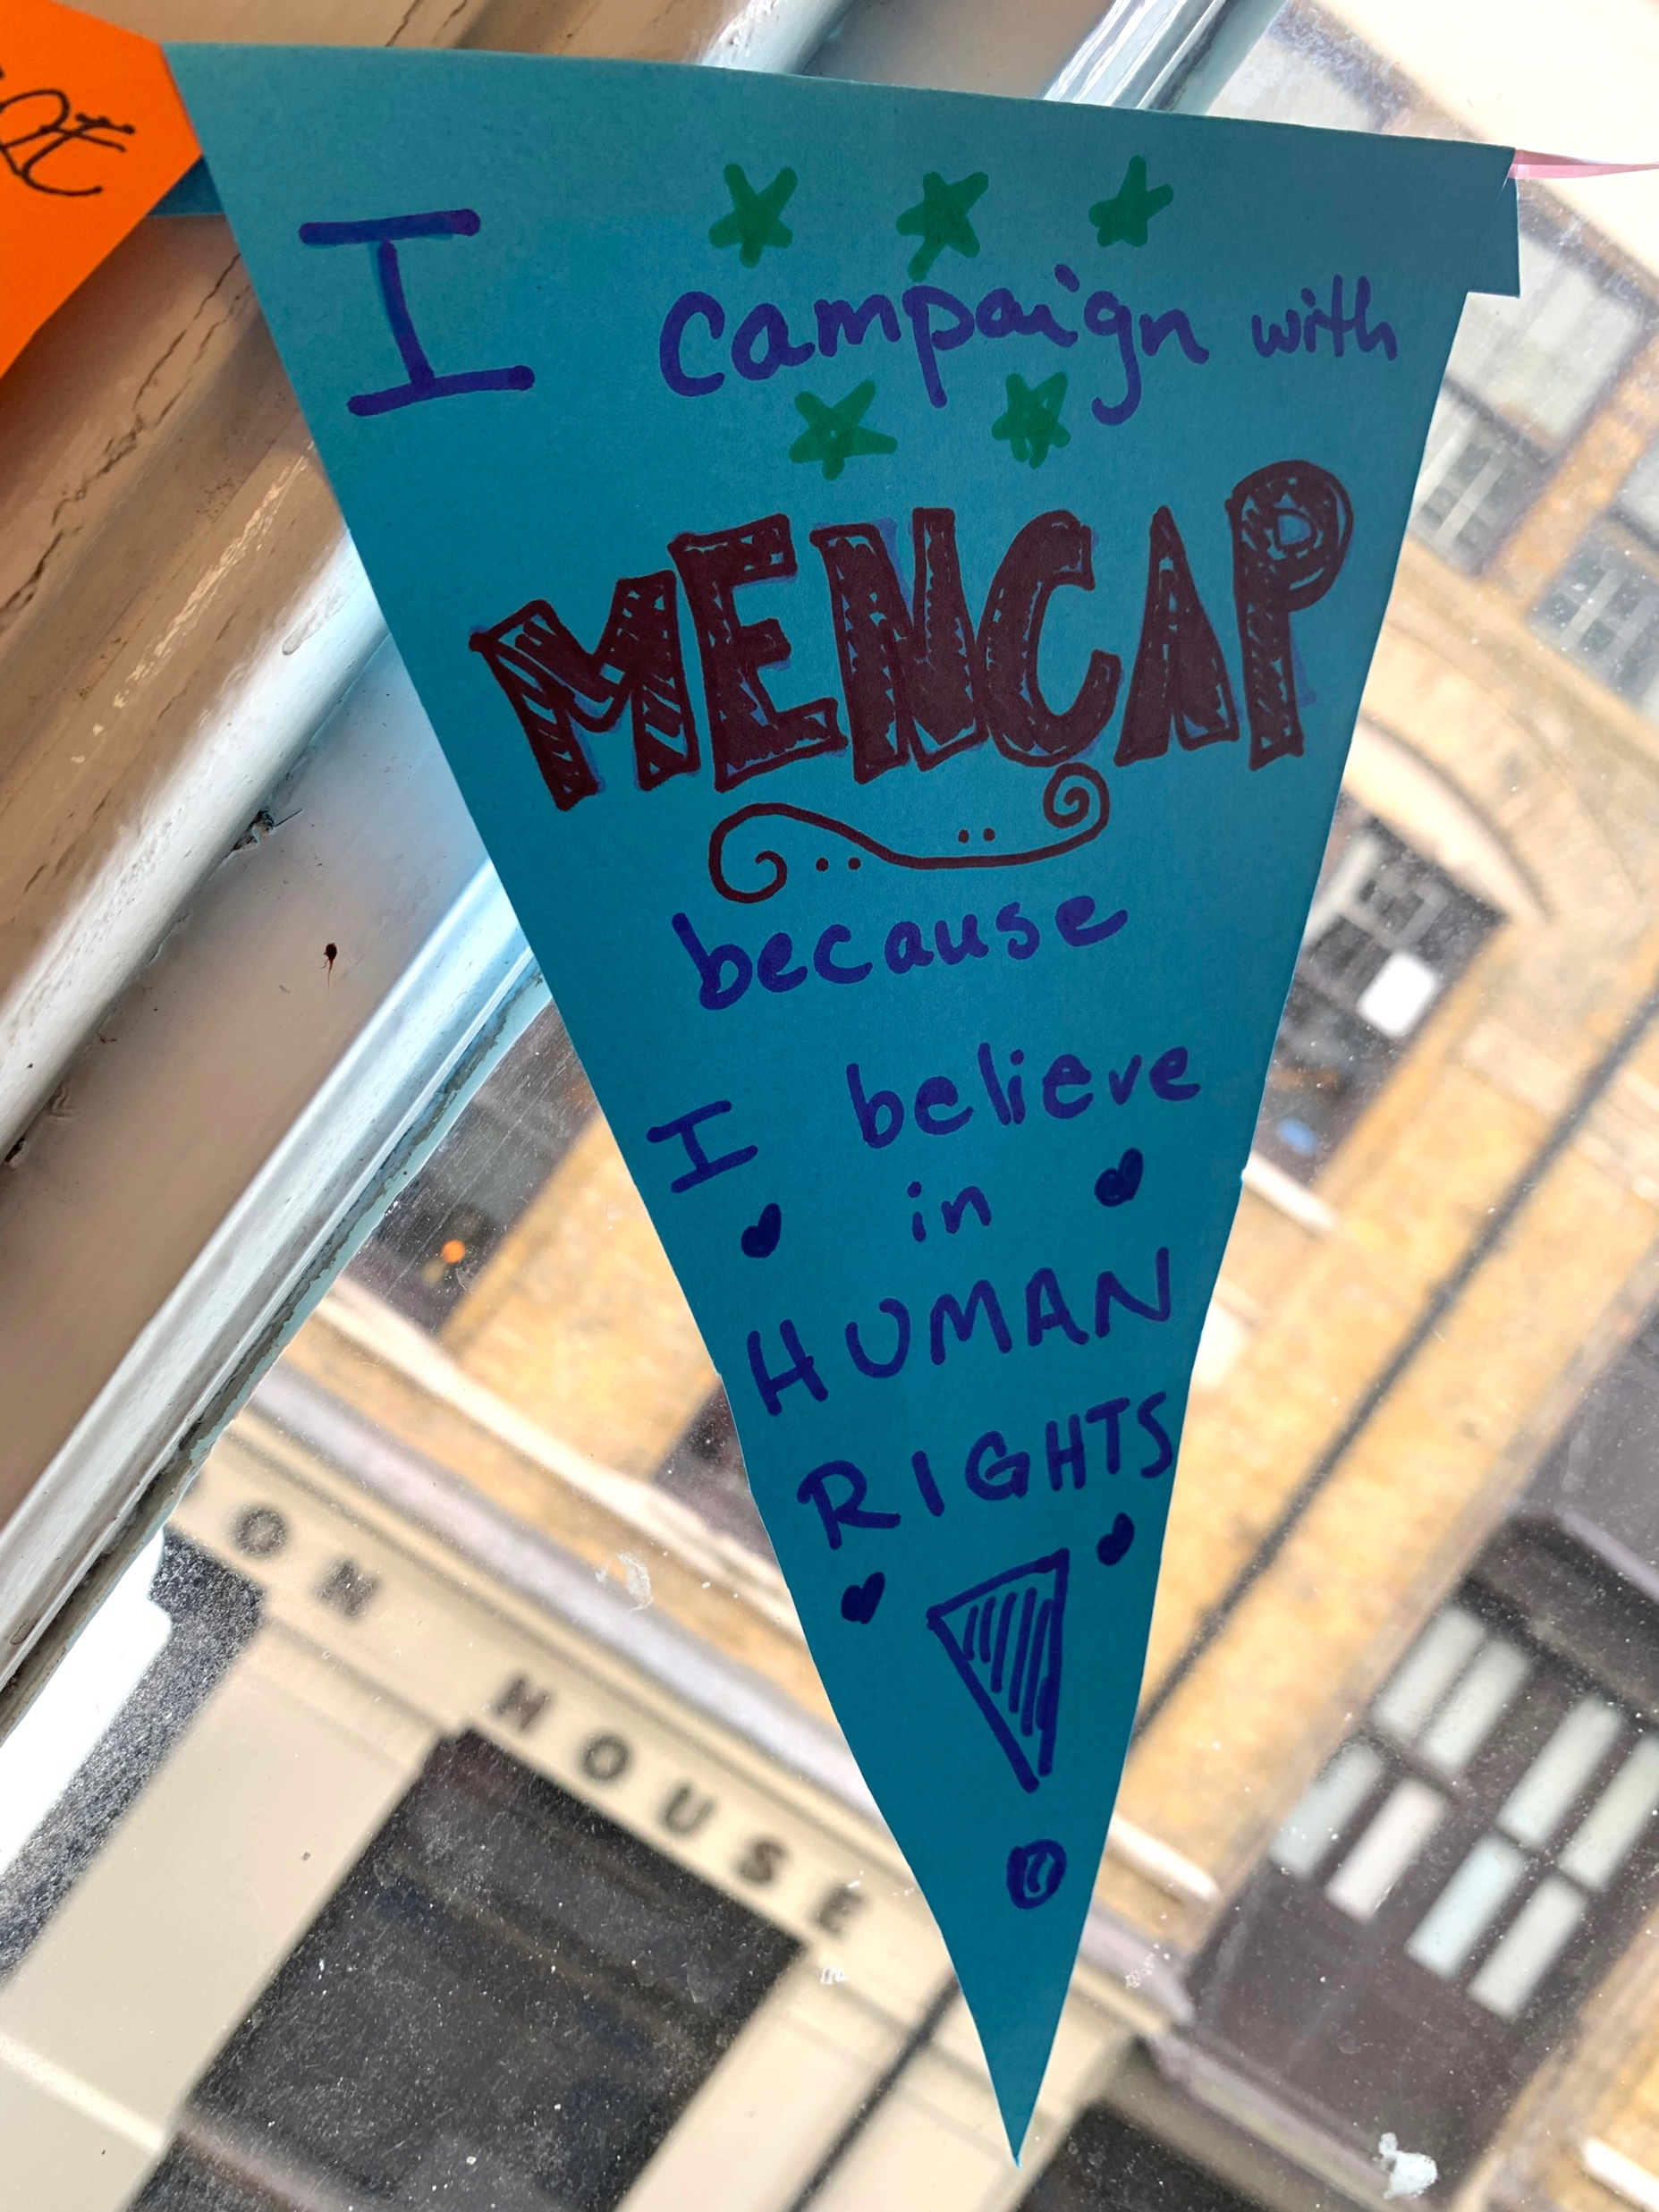 I campaign with
MENCAP
because
I believe
in
HUMAN
RIGHTS
!
ON HOUSE